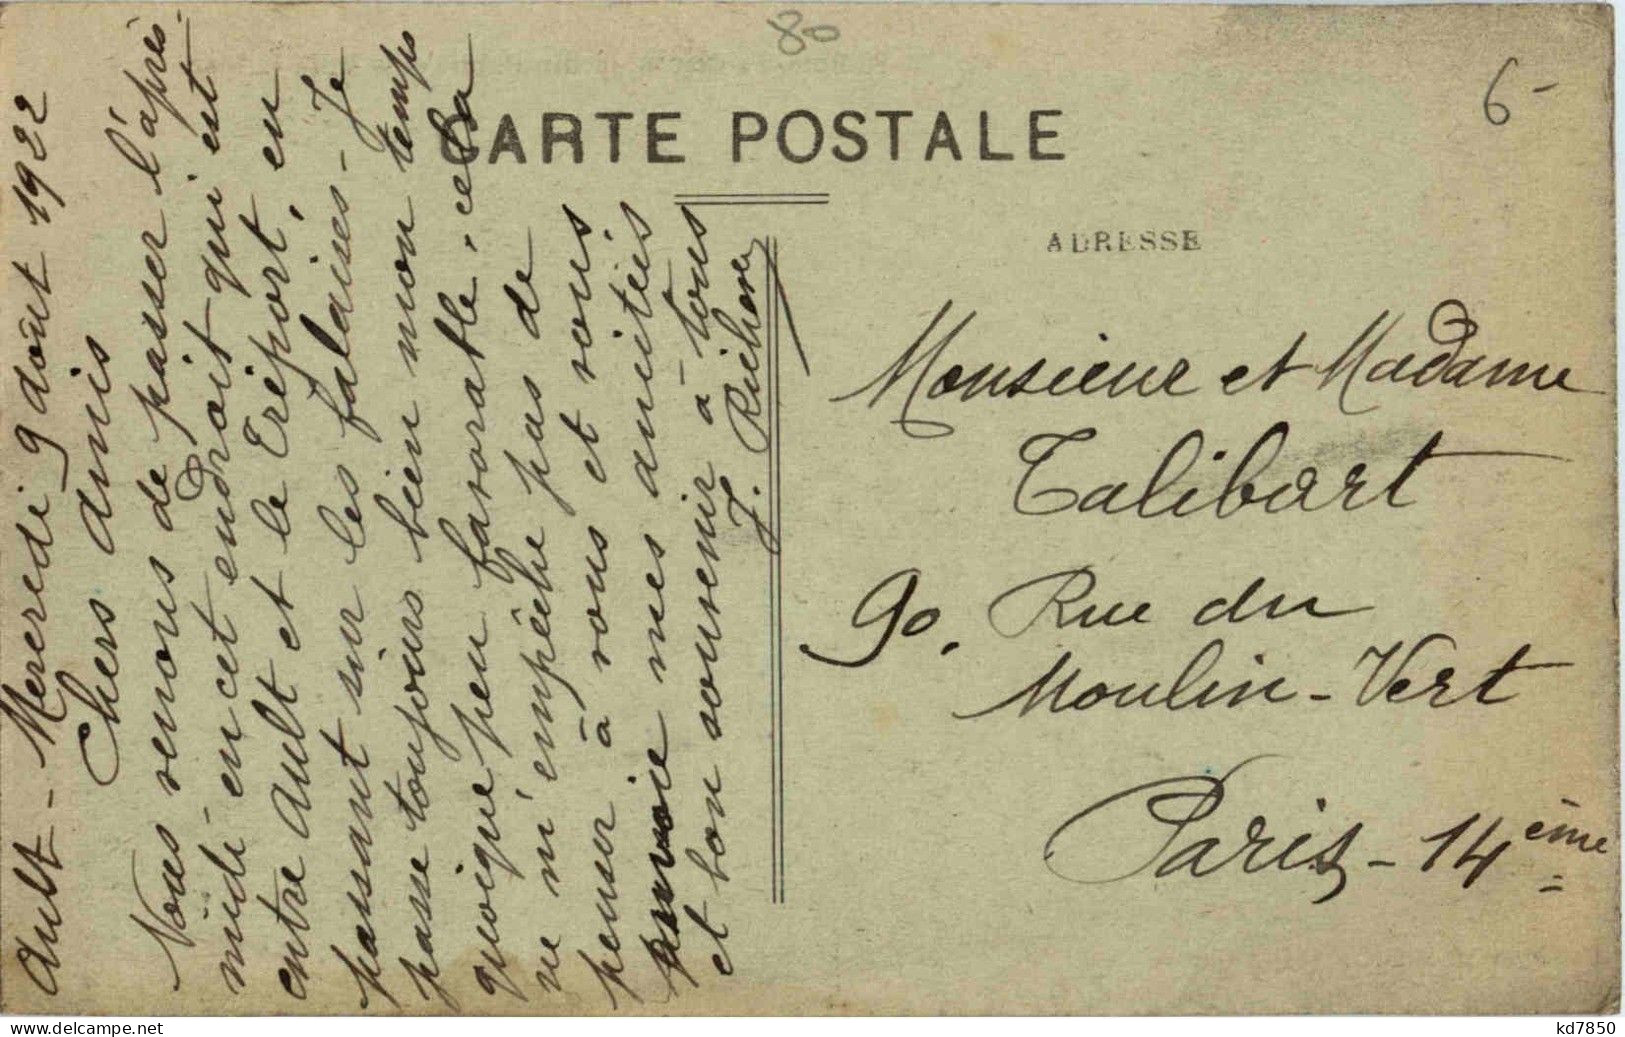 80
6-
CARTE POSTALE
ADRESSE
Ault - Mercredi 9 août 1922
Chers amis
Nous venons de passer l'après-
midi en cet endroit qui est
entre Ault et le Tréport, en
passant sur les falaises - Je
passe toujours bien mon temps
quoique peu favorable, cela
ne m'empêche pas de
penser à vous et vous
envoie mes amitiés
et bon souvenir à tous
J.
Monsieur et Madame
Talibart
90, Rue du
Moulin-Vert
Paris - 14ème
kd7850